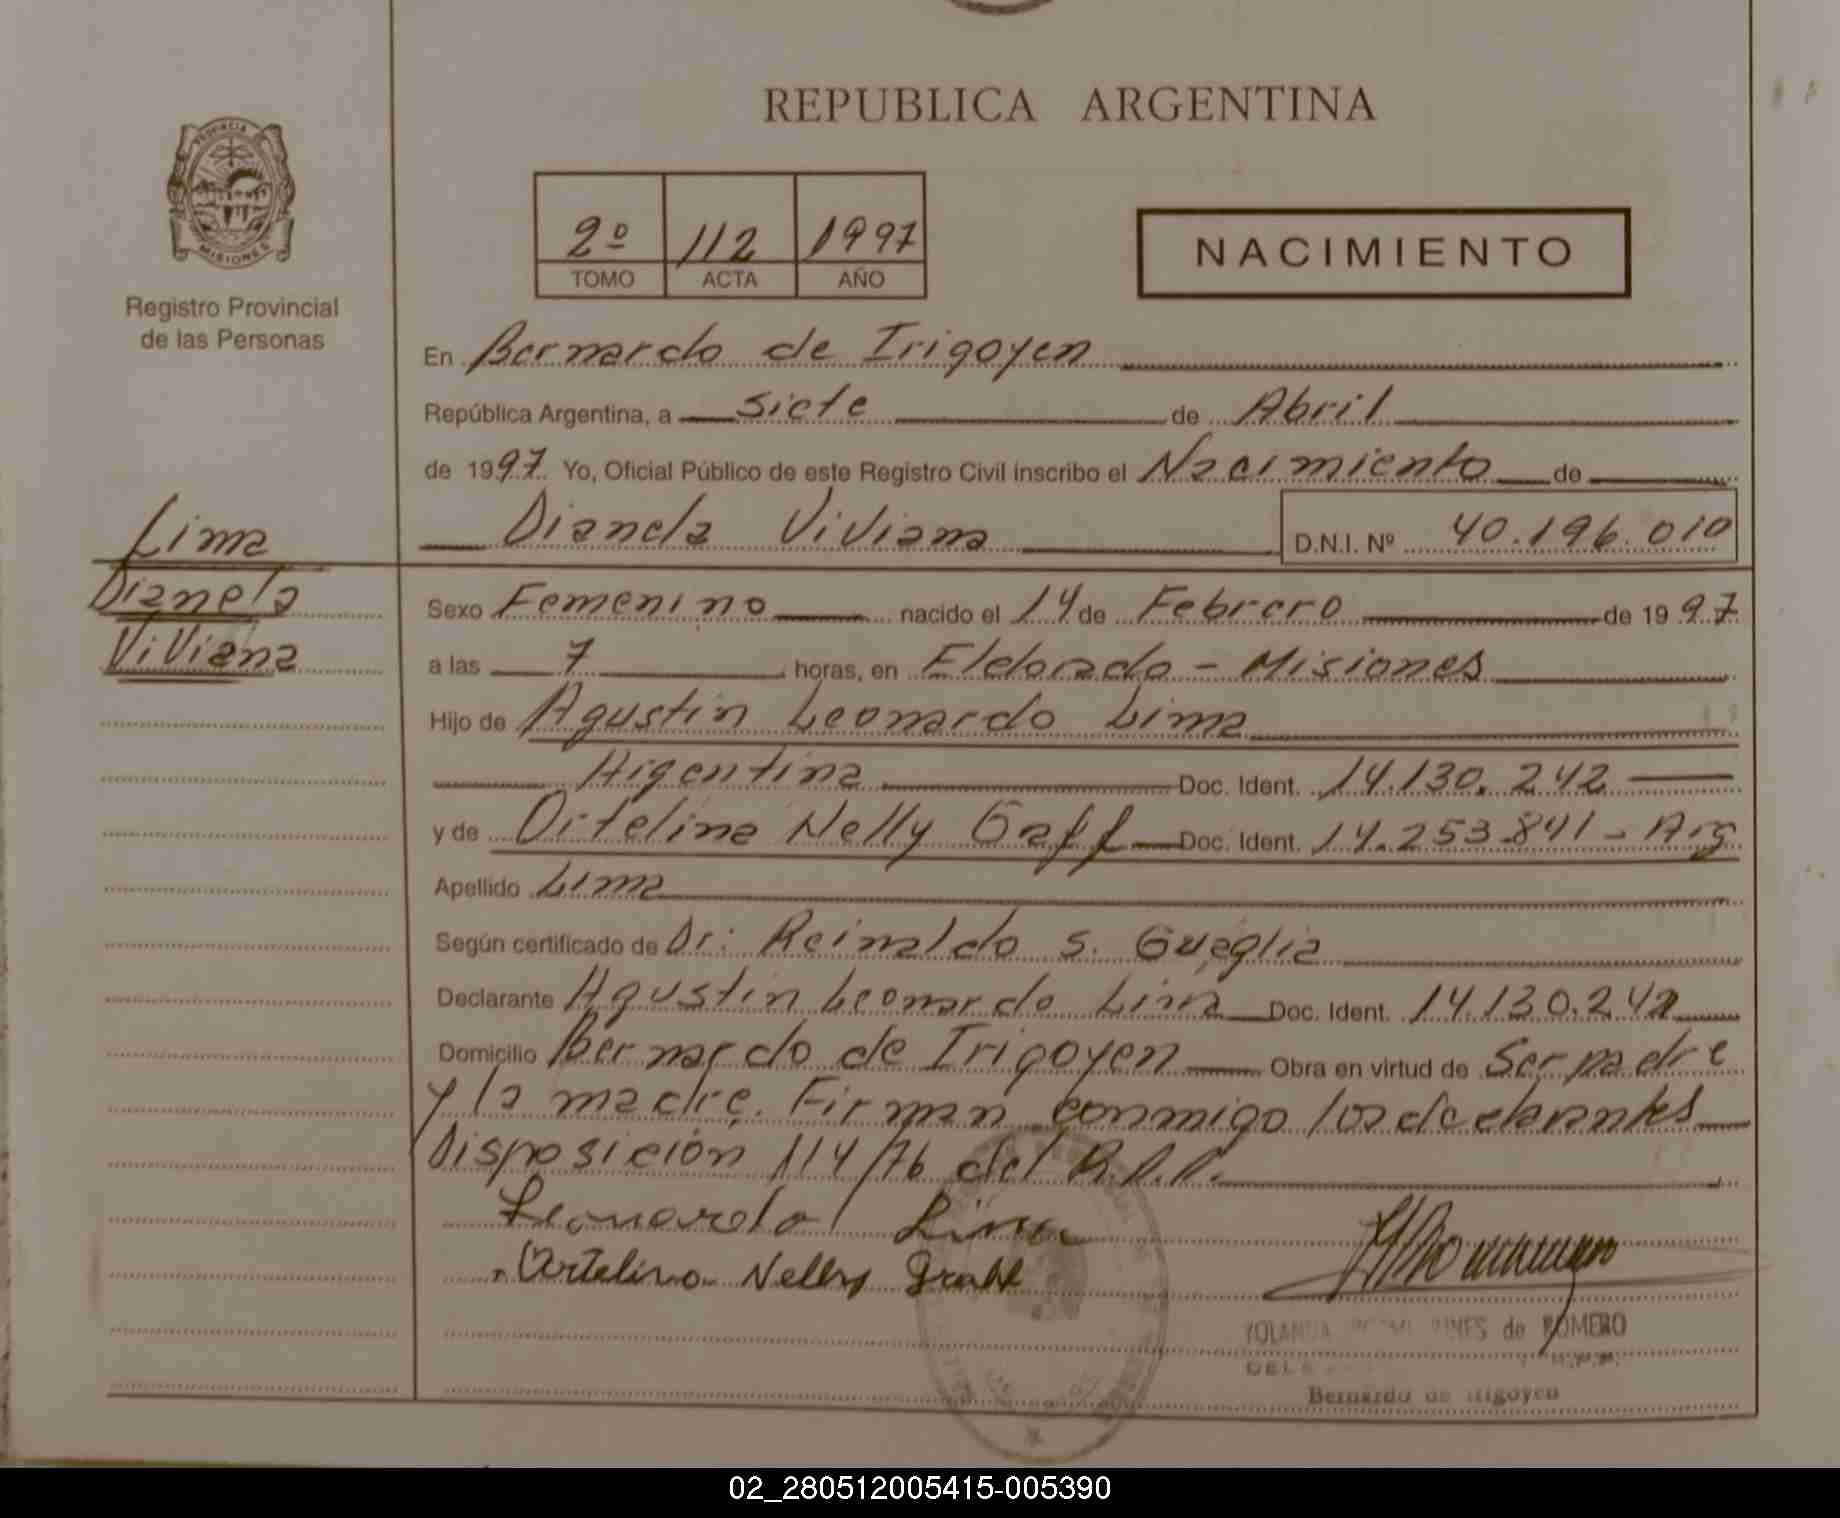 REPUBLICA ARGENTINA
PROVINCIA
MISIONES
Registro Provincial
de las Personas
2º 112 1997
TOMO ACTA AÑO
NACIMIENTO
En Bernardo de Irigoyen
República Argentina, a siete de Abril
de 1997 Yo, Oficial Público de este Registro Civil inscribo el Nacimiento de
Dianela Viviana D.N.I. Nº 40.196.010
Lima
Dianela
Viviana
Sexo Femenino nacido el 14 de Febrero de 1997
a las 7 horas, en Eldorado - Misiones
Hijo de Agustin Leonardo Lima
Argentina Doc. Ident. 14.130.242
y de Ortelina Nelly Gaff Doc. Ident. 14.253.841 - Arg
Apellido Lima
Según certificado de Dr: Reinaldo S. Gueglia
Declarante Agustin Leonardo Lima Doc. Ident. 14.130.242
Domicilio Bernardo de Irigoyen Obra en virtud de Ser padre
y la madre. Firman conmigo los declarantes
Disposición 114/76 del R.P.P.
Leonardo Lima
Ortelina Nelly
YOLANDA de ROMERO
Bernardo de Irigoyen
02_280512005415-005390